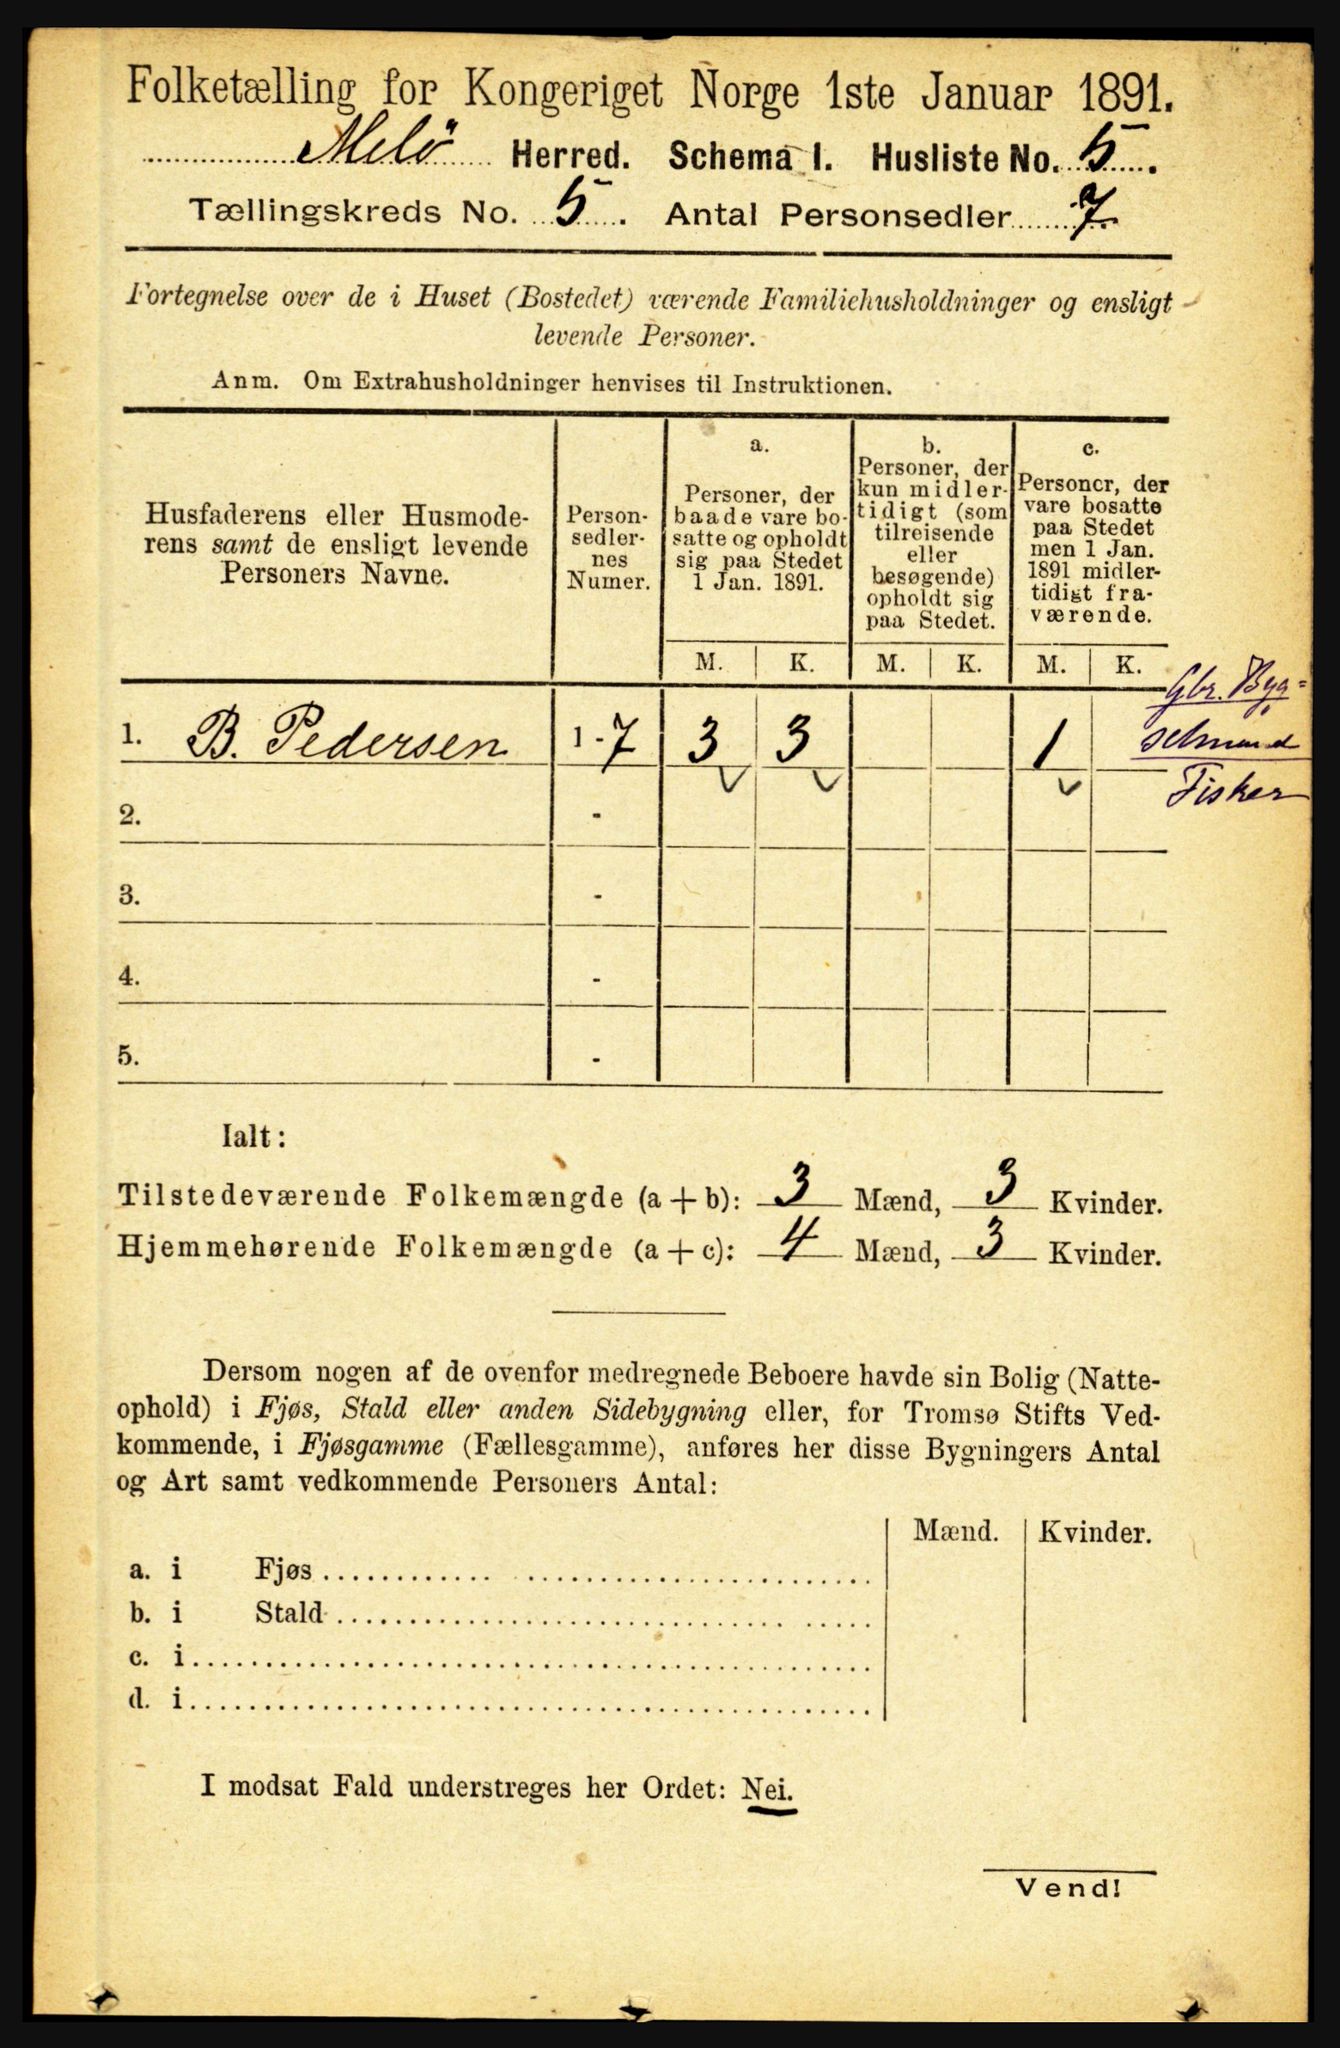 Folketælling for Kongeriget Norge 1ste Januar 1891.
Melö Herred. Schema I. Husliste No. 5.
Tællingskreds No. 5. Antal Personsedler 7.
Fortegnelse over de i Huset (Bostedet) værende Familiehusholdninger og ensligt
levende Personer.
Anm. Om Extrahusholdninger henvises til Instruktionen.
Husfaderens eller Husmode-
rens samt de ensligt levende
Personers Navne.
Person-
sedler-
nes
Numer.
a.
Personer, der
baade vare bo-
satte og opholdt
sig paa Stedet
1 Jan. 1891.
b.
Personer, der
kun midler-
tidigt (som
tilreisende
eller
besøgende)
opholdt sig
paa Stedet.
c.
Personer, der
vare bosatte
paa Stedet
men 1 Jan.
1891 midler-
tidigt fra-
værende.
M. K. M. K. M. K.
1. B. Pedersen 1-7 3 3 1
Gbr. Byg=
selmand
Fisker
2. -
3. -
4. -
5. -
Ialt:
Tilstedeværende Folkemængde (a + b): 3 Mænd, 3 Kvinder.
Hjemmehørende Folkemængde (a + c): 4 Mænd, 3 Kvinder.
Dersom nogen af de ovenfor medregnede Beboere havde sin Bolig (Natte-
ophold) i Fjøs, Stald eller anden Sidebygning eller, for Tromsø Stifts Ved-
kommende, i Fjøsgamme (Fællesgamme), anføres her disse Bygningers Antal
og Art samt vedkommende Personers Antal:
Mænd. Kvinder.
a. i Fjøs
b. i Stald
c. i
d. i
I modsat Fald understreges her Ordet: Nei.
Vend!